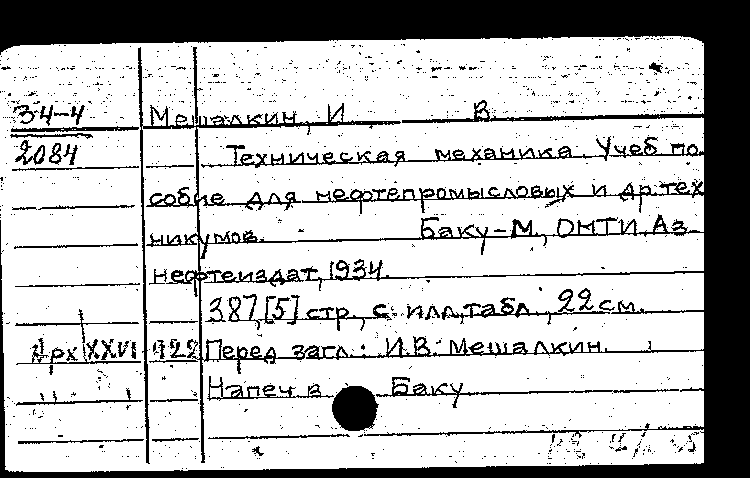 34-4 Мешалкин, И. В.
2084 Техническая механика. Учеб. по-
собие для нефтепромысловых и др. тех-
никумов. Баку-М., ОНТИ. Аз-
нефтеиздат, 1934.
387, [5] стр., с. илл., табл., 22 см.
Арх XXVI 922 Перед загл.: И.В. Мешалкин.
Напеч. в Баку